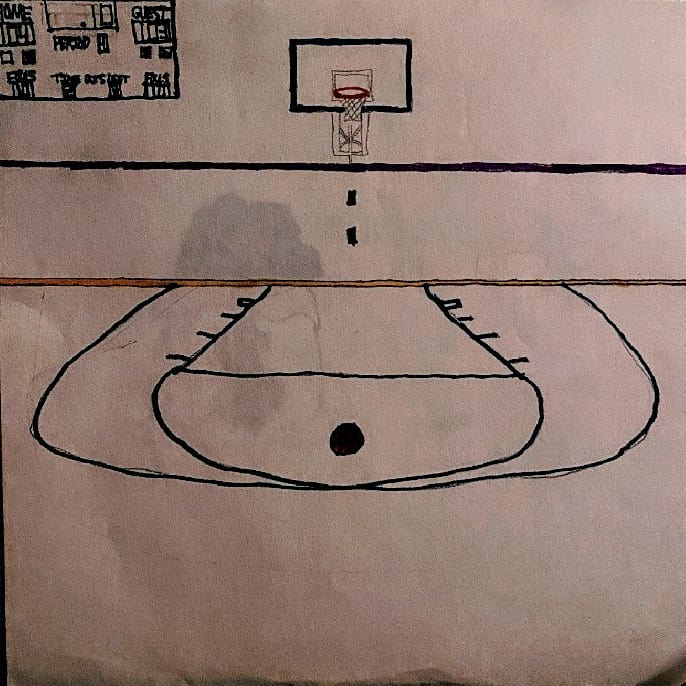 HOME GUEST
PERIOD
FOULS TIME OUTS LEFT FOULS